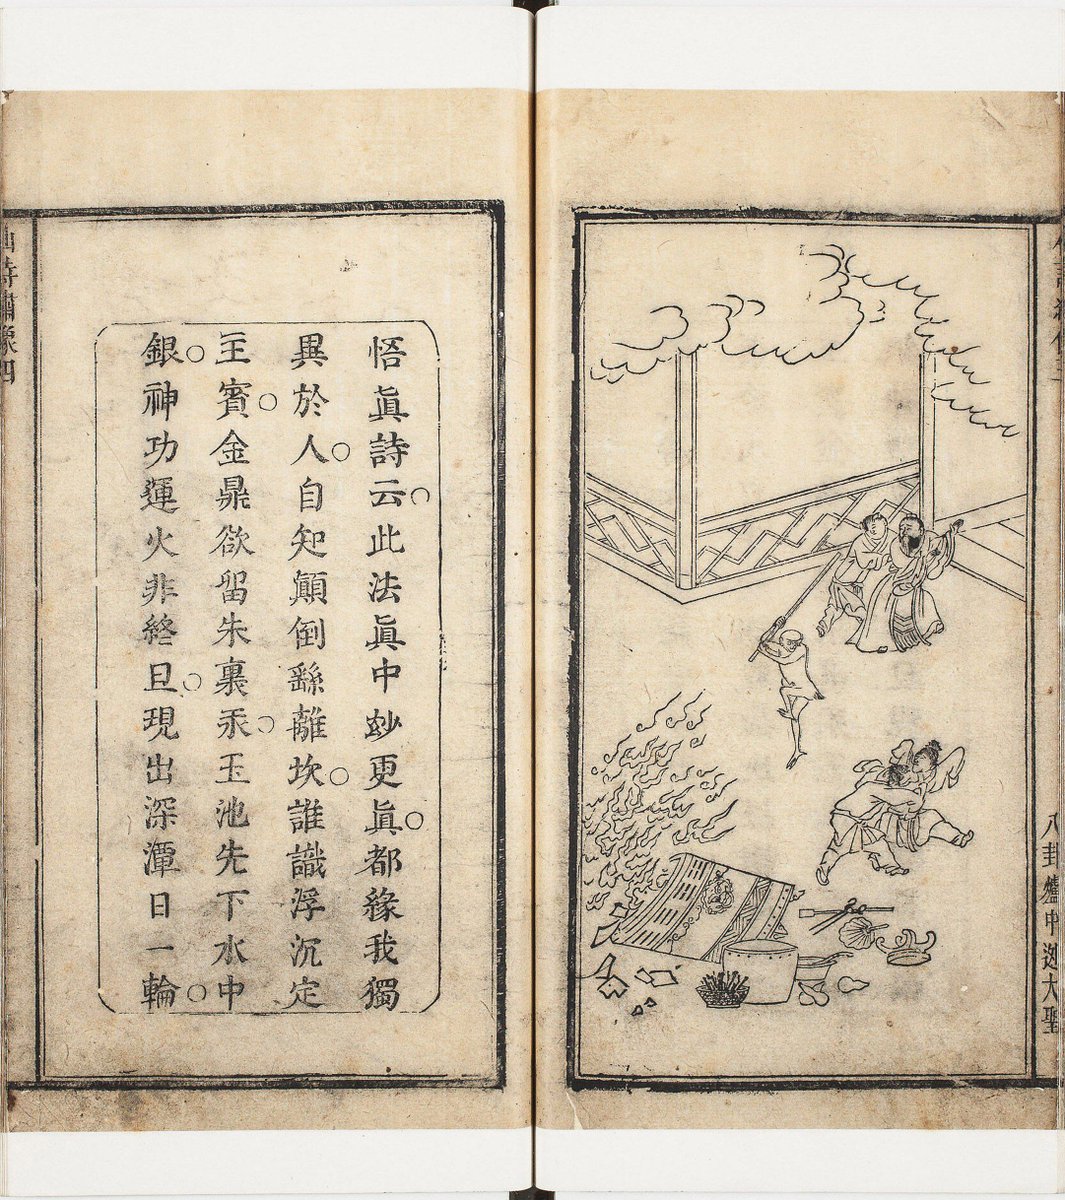 八卦爐中迯大聖
悟眞詩云。此法眞中玅更眞。都緣我獨
異於人。自知顚倒繇離坎。誰識浮沉定
主賓。金鼎欲留朱裏汞。玉池先下水中
銀。神功運火非終旦。現出深潭日一輪。
詩繡像四